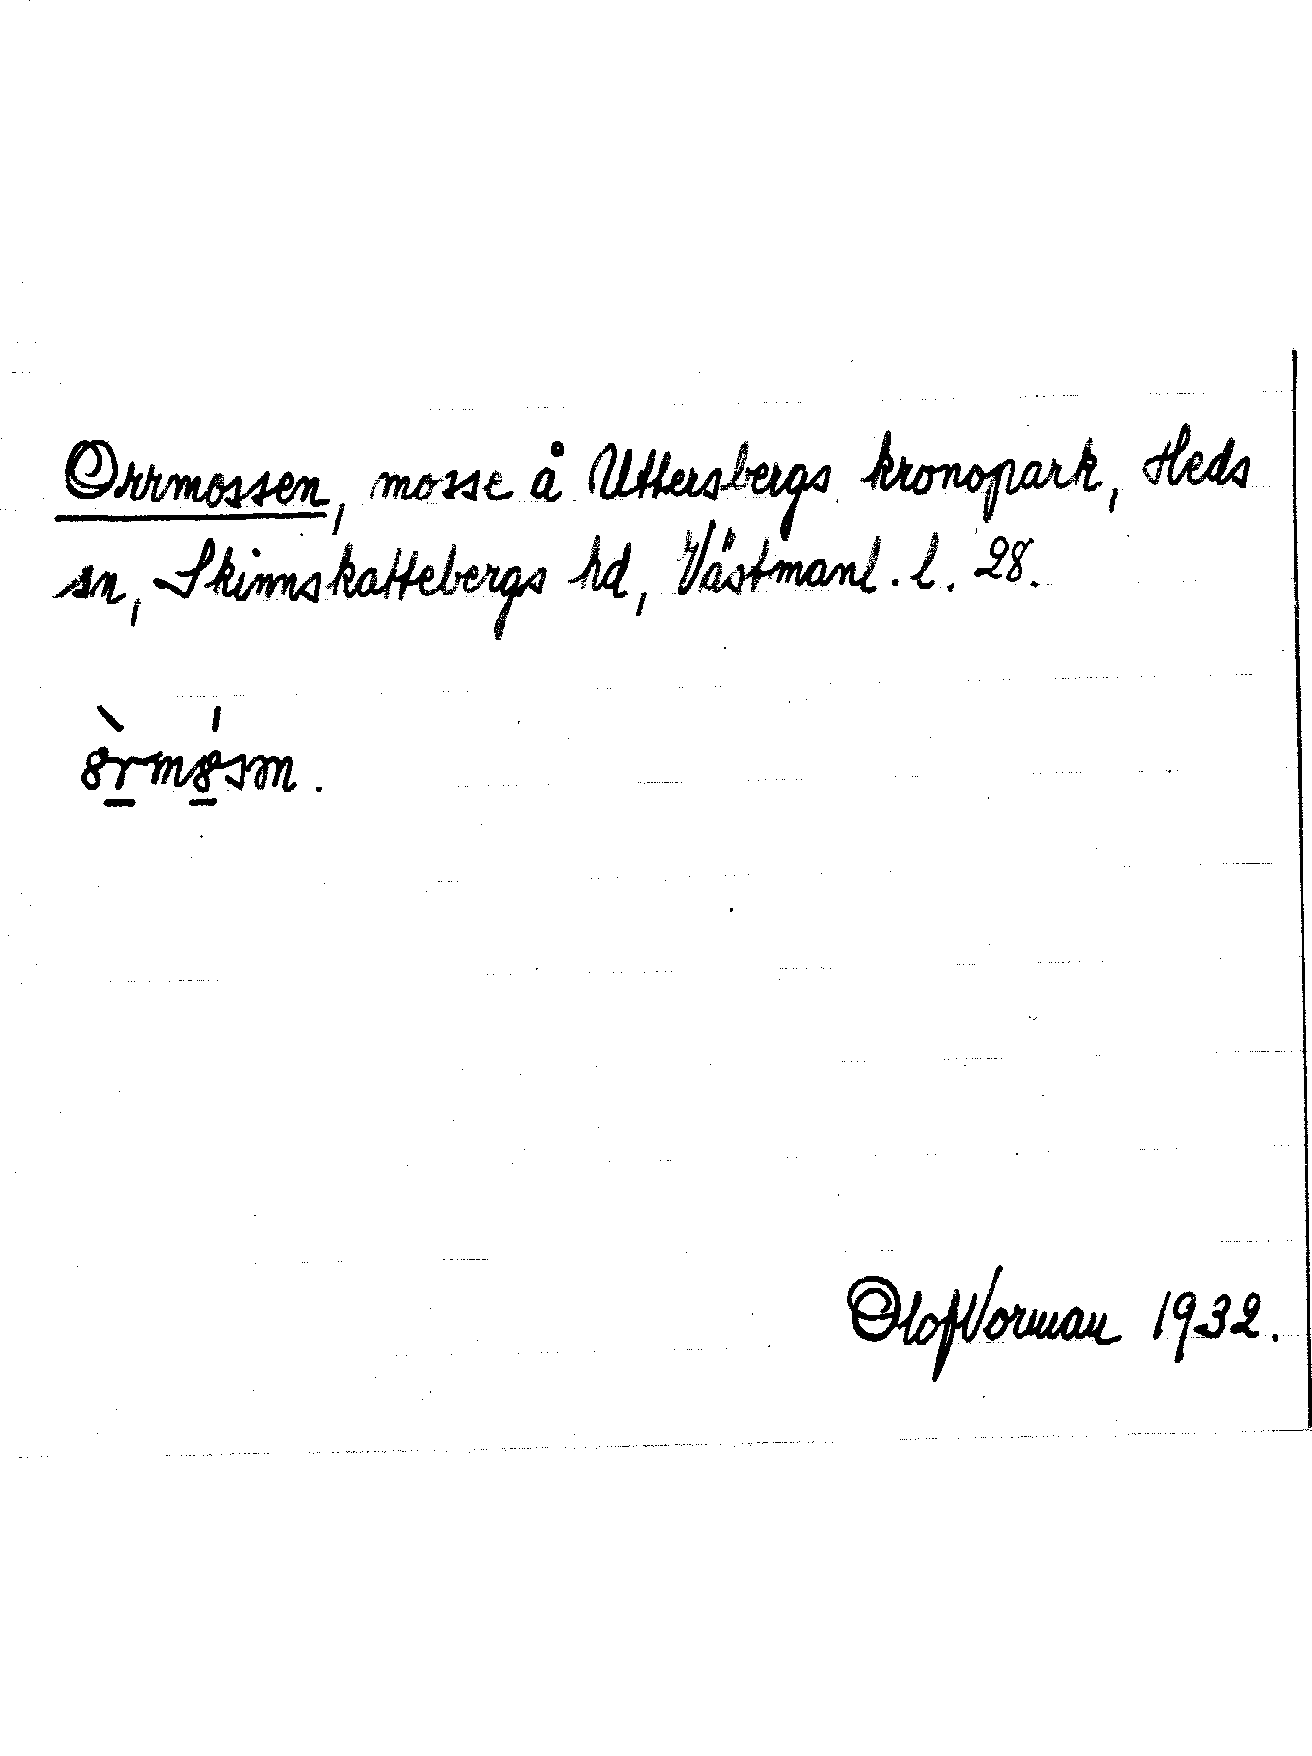 Orrmossen, mosse å Uttersbergs kronopark, Heds
sn, Skinnskattebergs hd, Västmanl. l. 28.
Olof Vorman 1932.